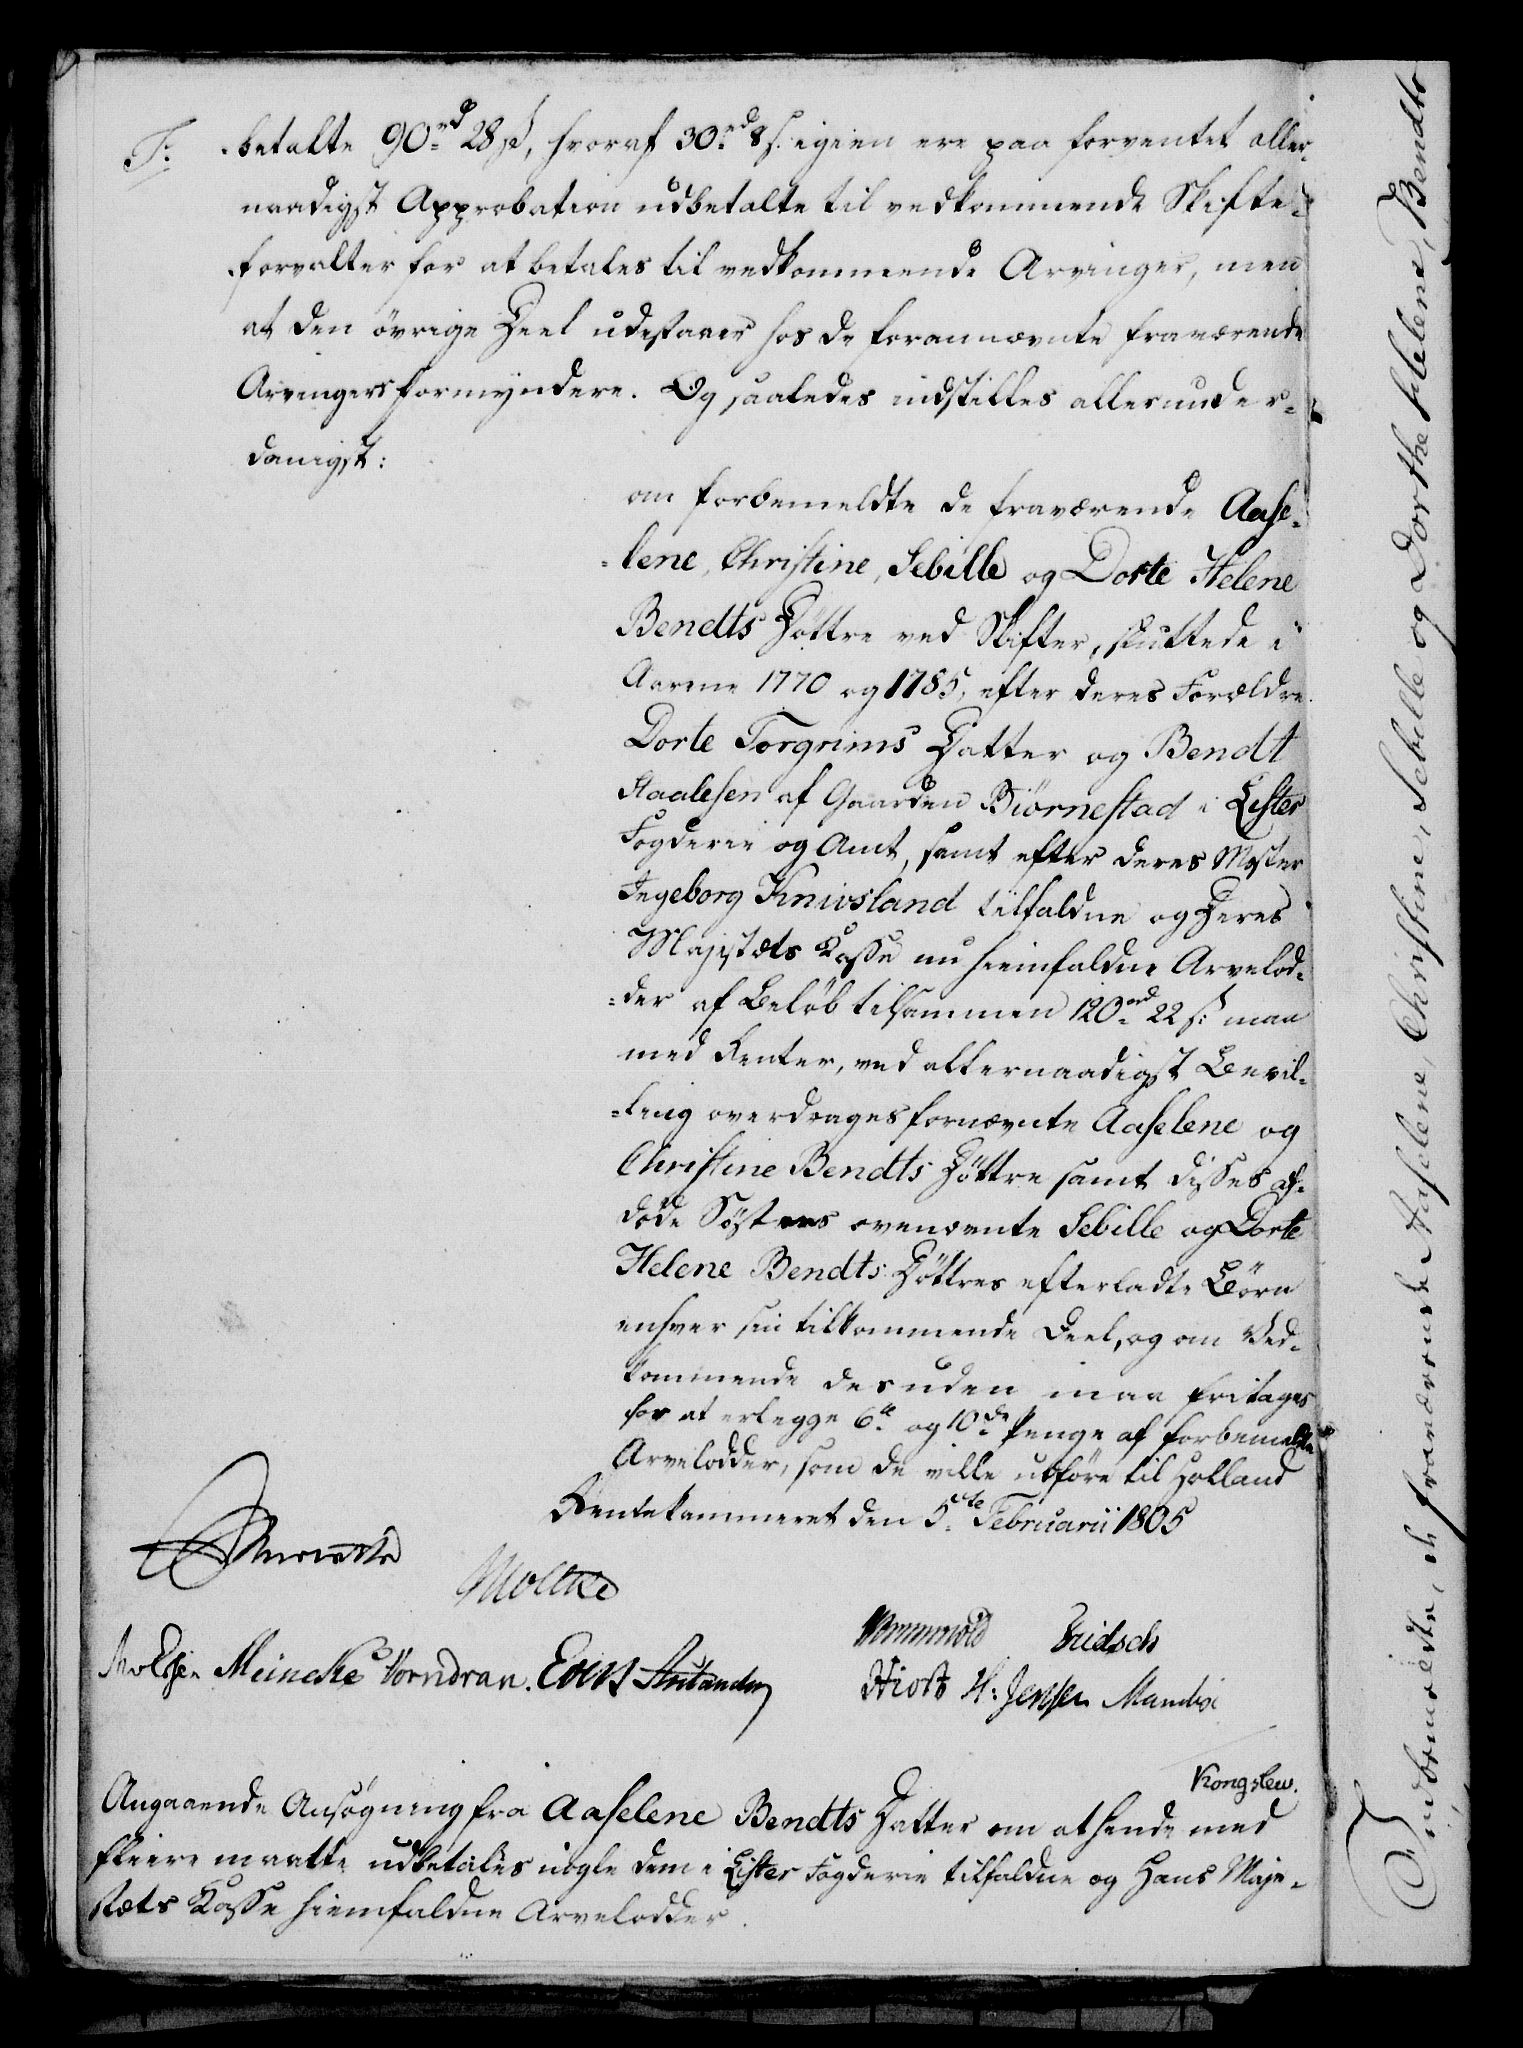 F:
betalte 90rd 28 s, hvoraf 30rd 8 s. igien ere paa forventet aller-
naadigst Approbation udbetalte til vedkommende Skifte-
forvalter for at betales til vedkommende Arvinger, men
at den övrige Deel udestaaer hos de forannævnte fraværende
Arvingers formyndere. Og saaledes indstilles allerunder-
danigst:
om forbemeldte de fraværende Aase-
lene, Christine, Sebille og Dorte Helene
Bendts Döttre ved Skifter, sluttede i
Aarene 1770 og 1785, efter deres Forældre
Dorte Torgrims Datter og Bendt
Staalesen af Gaarden Biörnestad i Lister
Fogderie og Amt, samt efter deres Moster
Ingeborg Knivsland tilfaldne og Deres
Majestæts Kasse nu hiemfaldne Arvelod-
der af Beløb tilsammen 120rd 22 s: maa
med Renter, ved allernaadigst Bevil-
ling overdrages fornævnte Aaselene og
Christine Bendts Döttre samt disses af-
döde Söstres ovennævnte Sebille og Dorte
Helene Bendts Döttres efterladte Börn
enhver sin tilkommende Deel, og om Ved-
kommende desuden maa fritages
for at erlegge 6te og 10de Penge af forbemeldte
Arvelodder, som de ville udföre til Holland
Rentekammeret den 5te Februarii 1805
Moltke
Wormskiold Fridsch
Meincke Vorndran.
Hiort H: Jensen Manthei
Kongslew.
Angaaende Ansøgning fra Aaselene Bendts Datter om at hende med
fleere maatte udbetales nogle dem i Lister Fogderie tilfaldne og Hans Maje-
stæts Kasse hiemfaldne Arvelodder.
Indbemeldte, de fraværende Aaselene, Christine, Sebille og Dorthe Helene, Bendts